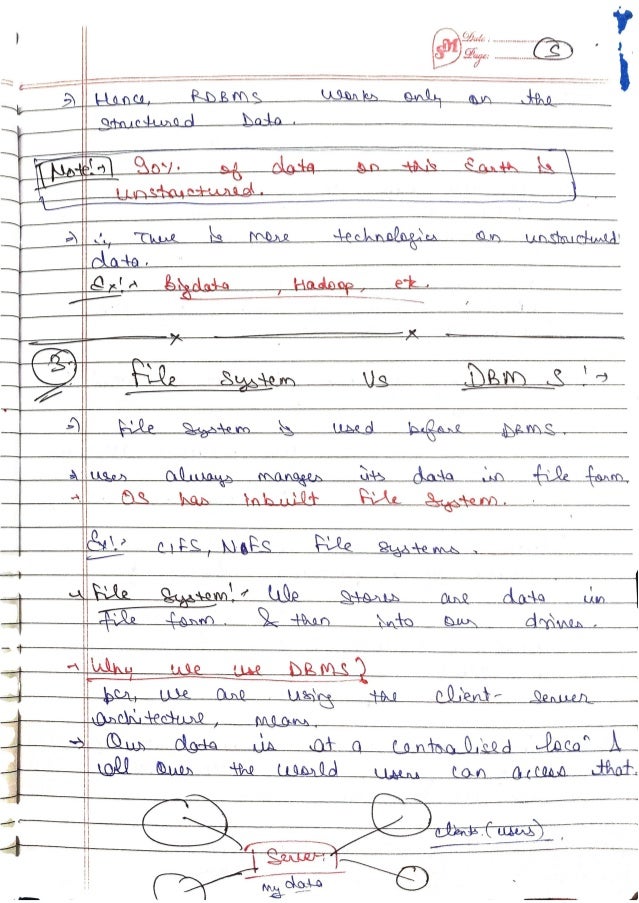 Date:
Page:
5
⇒ Hence, RDBMS works only on the
structured Data.
Note:→ 90% of data on this Earth is
unstructured.
⇒ ∴, There is more technologies on unstructured
data.
Ex:→ Bigdata, Hadoop, etc.
3.
File System Vs DBMS:→
⇒ File System is used before DBMS.
→ user always manages its data in file form.
→ OS has inbuilt File System.
Ex:- CIFS, NFS File systems.
→ File System:- We stores are data in
file form. & then into our drives.
→ Why we use DBMS?
bcz, we are using the client-server
architecture, means,
→ Our data is at a centralised locan &
all over the world users can access that.
clients (users).
Server
my data